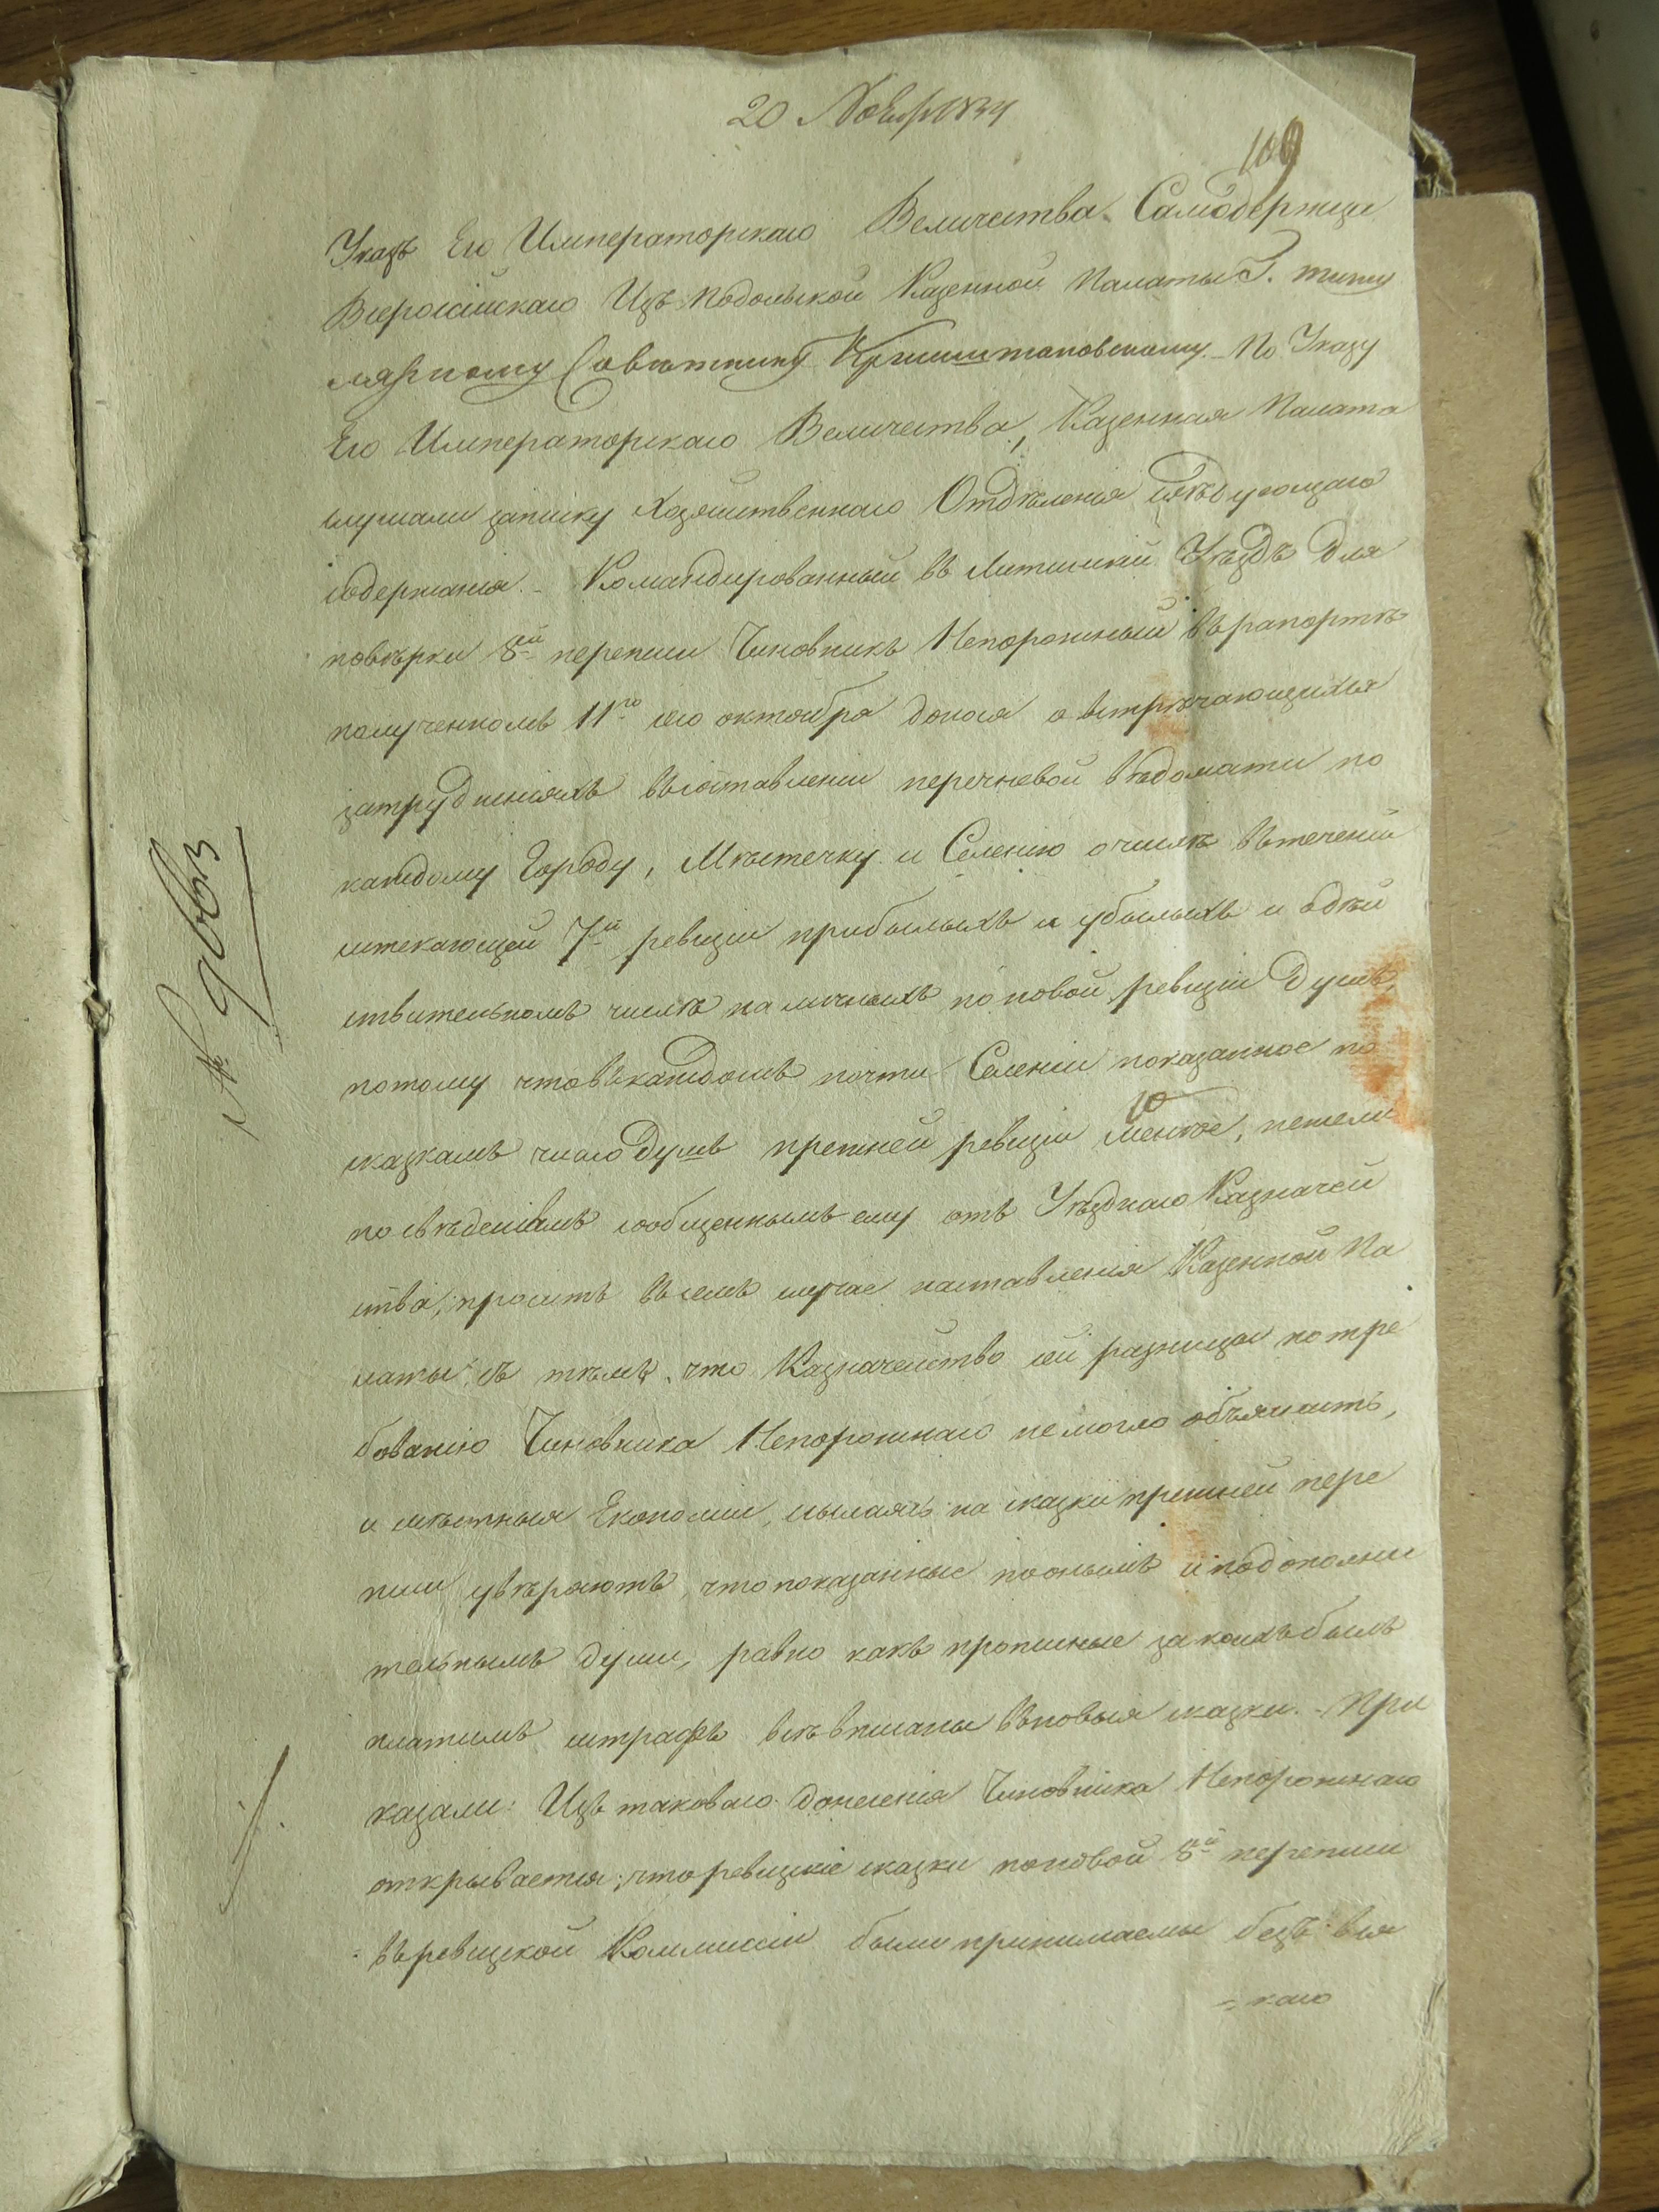 20 Ноябр 1834
109
Указъ Его Императорскаго Величества Самодержца
Всероссійскаго Изъ Подольской Казенной Палаты Г. титу
лярному Совѣтнику Кришштановскому. По Указу
Его Императорскаго Величества, Казенная Палата
слушали записку Хозяйственнаго Отдѣленія слѣдующаго
содержанія. Командированный въ Литинскій Уѣздъ для
повѣрки 8й переписи Чиновникъ Непорожный въ рапортѣ
полученномъ 11го сего октября донося о встрѣчающихся
затрудненіяхъ въ составленіи перечневой вѣдомости по
каждому Городу, Мѣстечку и Селенію о числѣ въ теченіи
истекающей 7й ревизіи прибылыхъ и убылыхъ и о дѣй
ствительномъ числѣ наличныхъ по новой ревизіи душъ,
потому что въ каждомъ почти Селеніи показанное по
сказкамъ число душъ прежней ревизіи менѣе, нежели
по свѣденіямъ сообщеннымъ ему отъ Уѣзднаго Казначей
ства, проситъ въ семъ случае наставленія Казенной Па
латы съ тѣмъ, что Казначейство сей разницы по тре
бованію Чиновника Непорожнаго не могло объяснить,
и мѣстныя Економіи, ссылаясь на сказки прежней пере
писи увѣряютъ, что показанные по онымъ и по дополни
тельнымъ души, равно какъ прописные за коихъ былъ
платимъ штрафъ всѣ вписаны въ новыя сказки. При
казали: Изъ таковаго донесенія Чиновника Непорожнаго
открывается, что ревизскіе сказки по новой 8й переписи
въ ревизской Коммиссіи были принимаемы безъ вся
каго
№ 9663